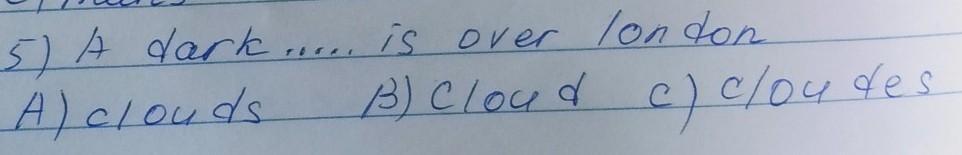 5) A dark ..... is over london
A) clouds B) Cloud c) cloudes